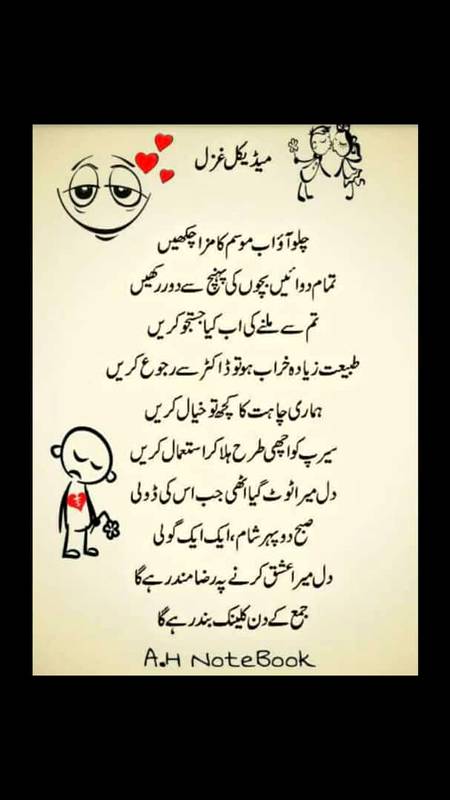 میڈیکل غزل
چلو آؤ اب موسم کا مزا چکھیں
تمام دوائیں بچوں کی پہنچ سے دور رکھیں
تم سے ملنے کی اب کیا جستجو کریں
طبیعت زیادہ خراب ہو تو ڈاکٹر سے رجوع کریں
ہماری چاہت کا کچھ تو خیال کریں
سیرپ کو اچھی طرح ہلا کر استعمال کریں
دل میرا ٹوٹ گیا اٹھی جب اس کی ڈولی
صبح دوپہر شام، ایک ایک گولی
دل میرا عشق کرنے پہ رضا مند رہے گا
جمع کے دن کلینک بند رہے گا
A.H NoteBook